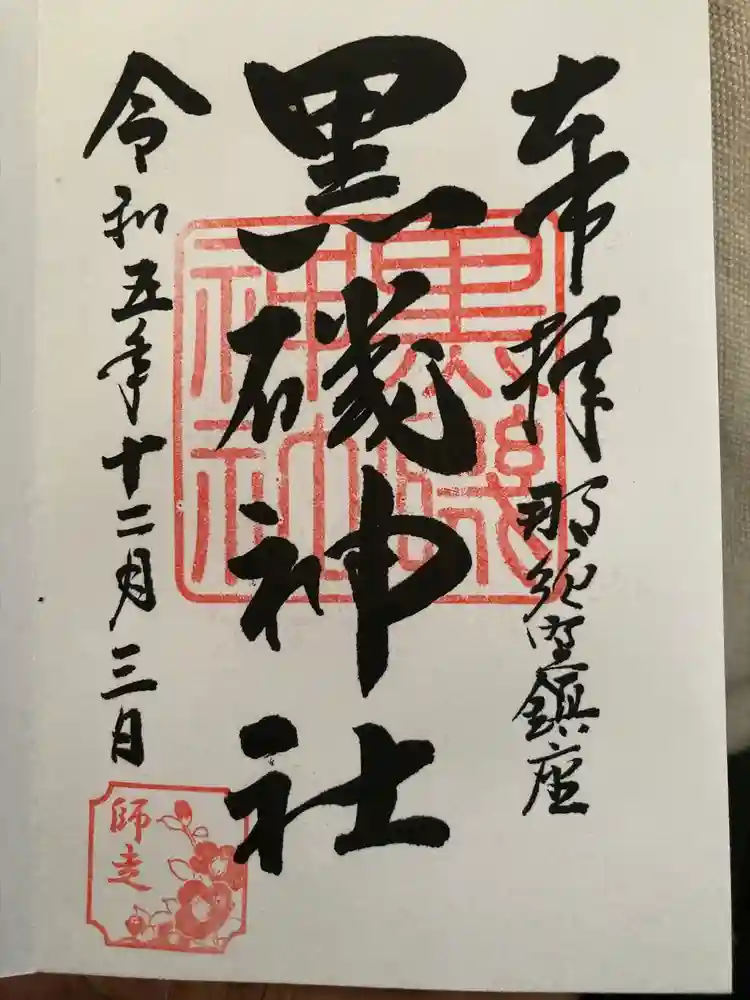 奉拝
那須 鎮座
黒磯神社
黒磯
神社
令和五年十二月三日
師走